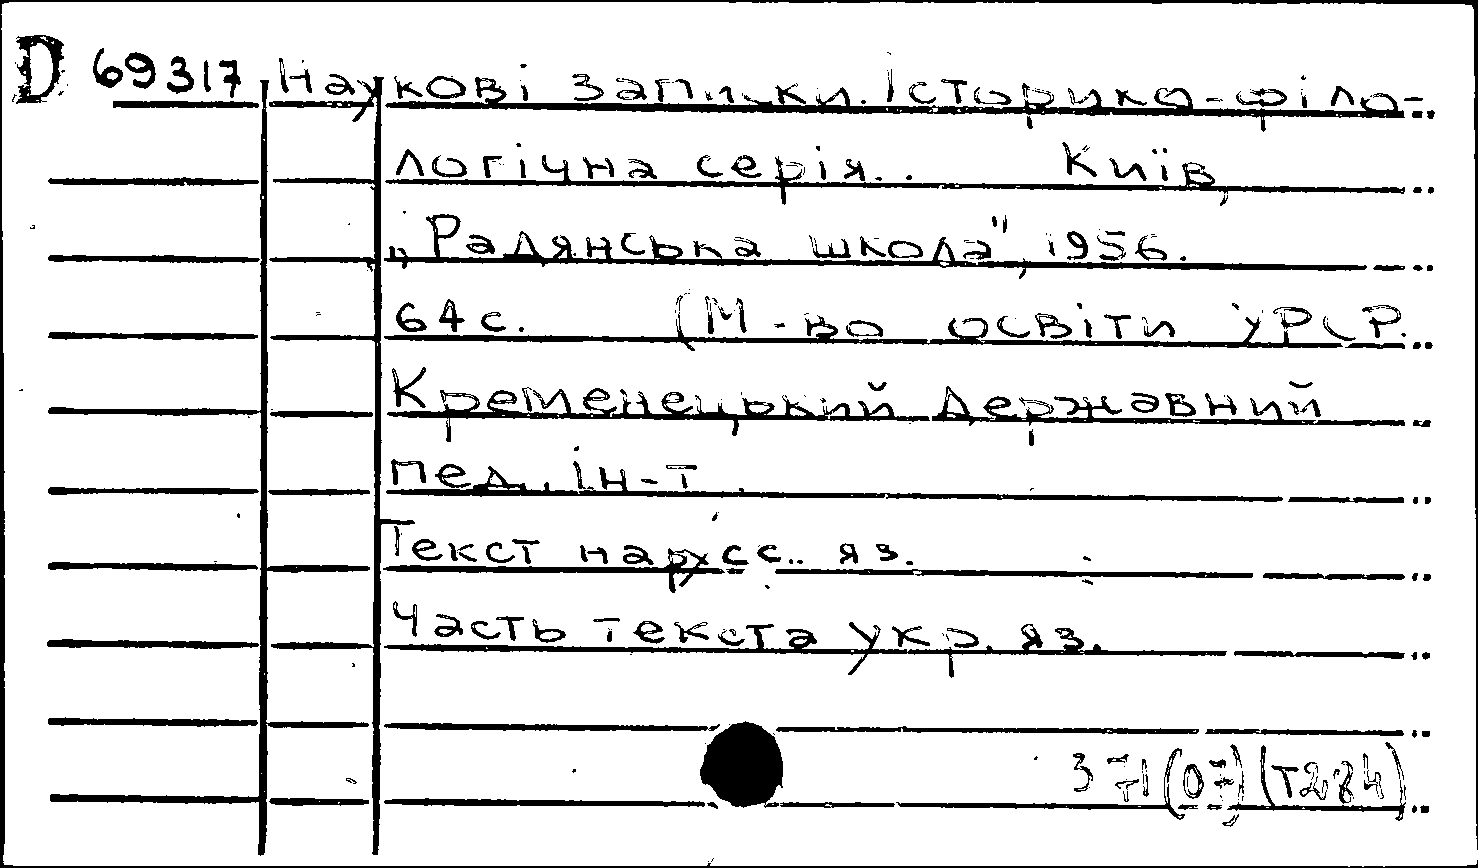 D 69317 Наукові записки. Історико-філо-
логічна серія.. Київ,
„Радянська школа", 1956.
64 с. (М-во освіти УРСР.
Кременецький державний
пед. ін-т.
Текст на русс. яз.
Часть текста укр. яз.
371(07)(Т284)